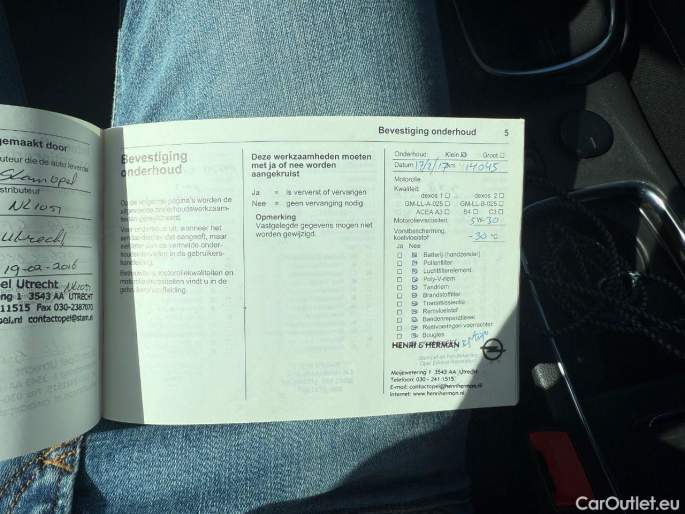 gemaakt door
buteur die de auto leverde
Stam Opel
stributeur
NL1051
Utrecht
19-02-2016
pel Utrecht NL1051
ring 1 3543 AA UTRECHT
111515 Fax 030-2387070
pel.nl contactopel@stam.nl
Bevestiging onderhoud 5
Bevestiging
onderhoud
Op de volgende pagina's worden de
uitgevoerde onderhoudswerkzaam-
heden geregistreerd.
Voer onderhoud uit, wanneer het
Deze werkzaamheden moeten
met ja of nee worden
aangekruist
Ja = is ververst of vervangen
Nee = geen vervanging nodig
Opmerking
Vastgelegde gegevens mogen niet
worden gewijzigd.
Onderhoud: Klein ☒ Groot ☐
Datum 13/2/17 km 14045
Motorolie
Kwaliteit:
dexos 1 ☐ dexos 2 ☐
GM-LL-A-025 ☐ GM-LL-B-025 ☐
ACEA A3 ☐ B4 ☐ C3 ☐
Motorolieviscositeit: 5W-30
Vorstbescherming,
koelvloeistof -30 °C
Ja Nee
☐ ☒ Batterij (handzender)
☐ ☒ Pollenfilter
☐ ☒ Luchtfilterelement
☐ ☒ Poly-V-riem
☐ ☒ Tandriem
☐ ☒ Brandstoffilter
☐ ☒ Transmissieolie
☐ ☒ Remvloeistof
☐ ☒ Bandenreparatieset
☐ ☒ Remvoeringen voor/achter
☐ ☒ Bougies
HENRI & HERMAN
Meijewetering 1 3543 AA Utrecht
Telefoon: 030 - 241 1515
E-mail: contactopel@henriherman.nl
Internet: www.henriherman.nl
CarOutlet.eu